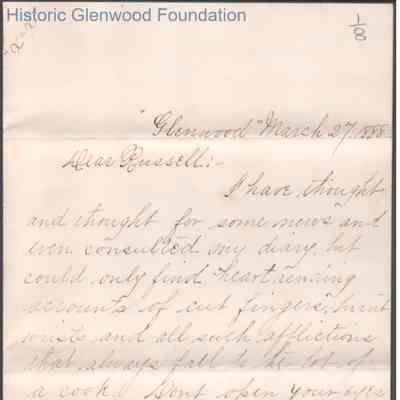 Historic Glenwood Foundation
1/8
"Glenwood" March 27. 1888
Dear Russell:-
I have thought
and thought for some news and
even consulted my diary, but
could only find heart rending
accounts of cut fingers, burnt
wrists and all such afflictions
that always fall to the lot of
a cook. Dont open your eyes